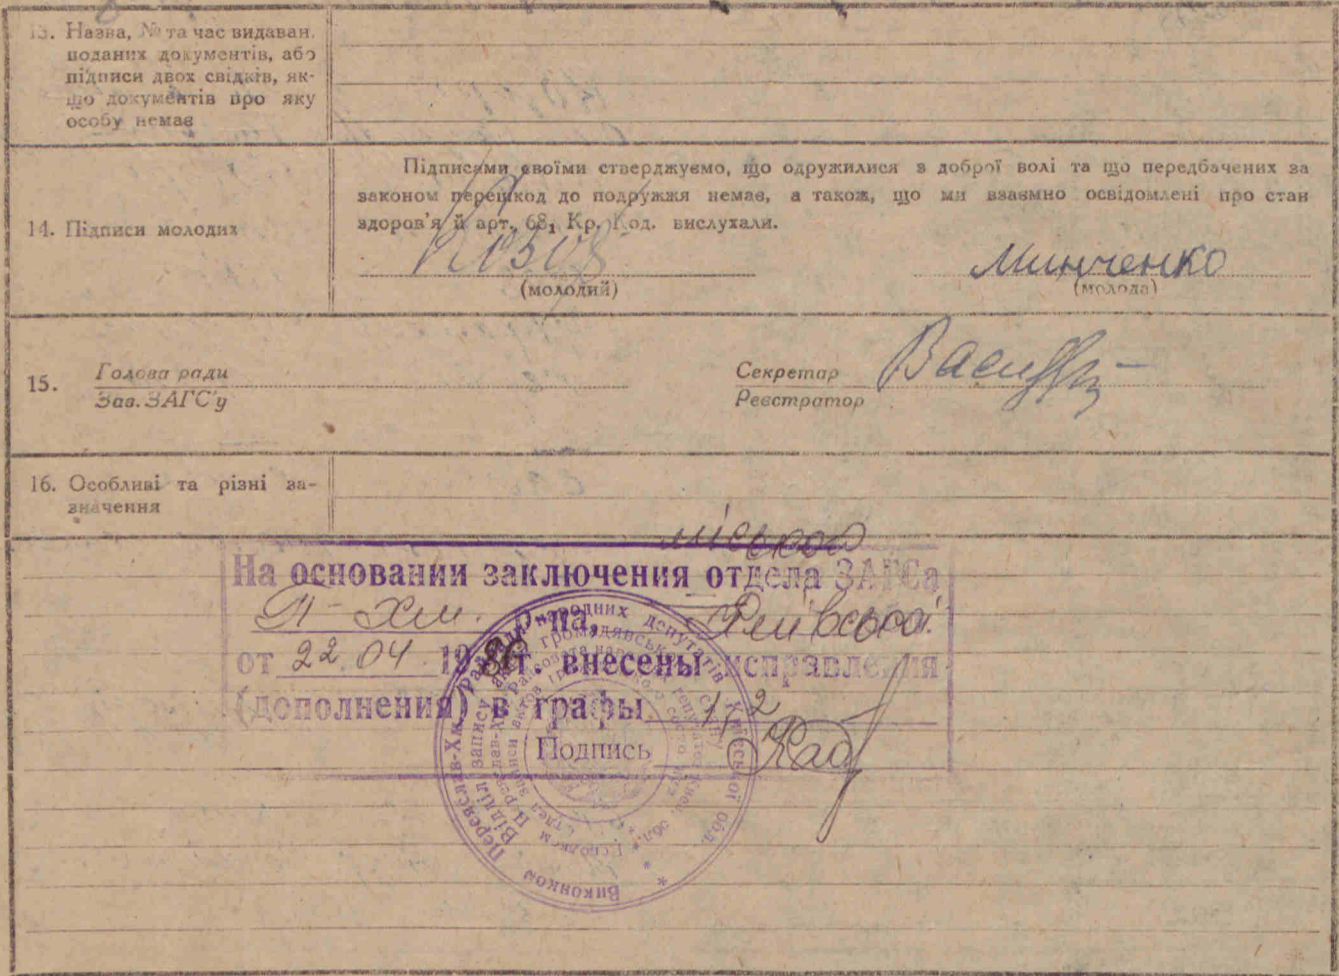 13. Назва, № та час видаван.
поданих документів, або
підписи двох свідків, як-
що документів про яку
особу немає
Підписами своїми стверджуємо, що одружилися з доброї волі та що передбачених за
законом перешкод до подружжя немає, а також, що ми взаємно освідомлені про стан
здоров'я й арт. 68₁ Кр. Код. вислухали.
14. Підписи молодих
Минченко
(молодий) (молода)
15. Голова ради
Зав. ЗАГС'у
Секретар
Реєстратор
16. Особливі та різні за-
значення
міською
На основании заключения отдела ЗАГСа
П-Хм. р-на,
от 22.04 1986 г. внесены исправления
(дополнения) в графы 1, 2
Подпись
Виконком Переяслав-Хм. Ради народних депутатів Київської обл.
Відділ запису актів громадянського стану